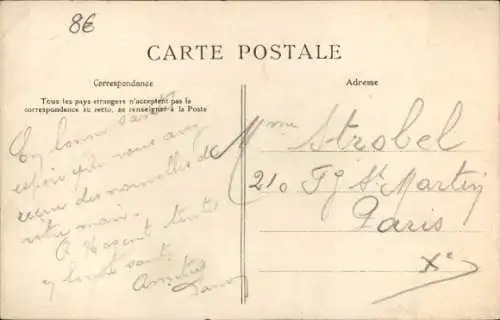 86
CARTE POSTALE
Correspondance
Tous les pays étrangers n'acceptent pas la
correspondance au recto, se renseigner à la Poste
En bonne santé
espoir que vous avez
reçue des nouvelles de
votre mari.
A tente
bonne santé
Amitiés
Adresse
Mme Strobel
210 Fg St Martin
Paris
Xe